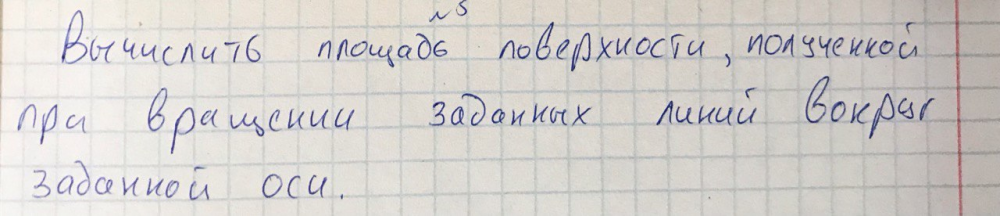 №5
Вычислить площадь поверхности, полученной
при вращении заданных линий вокруг
заданной оси.